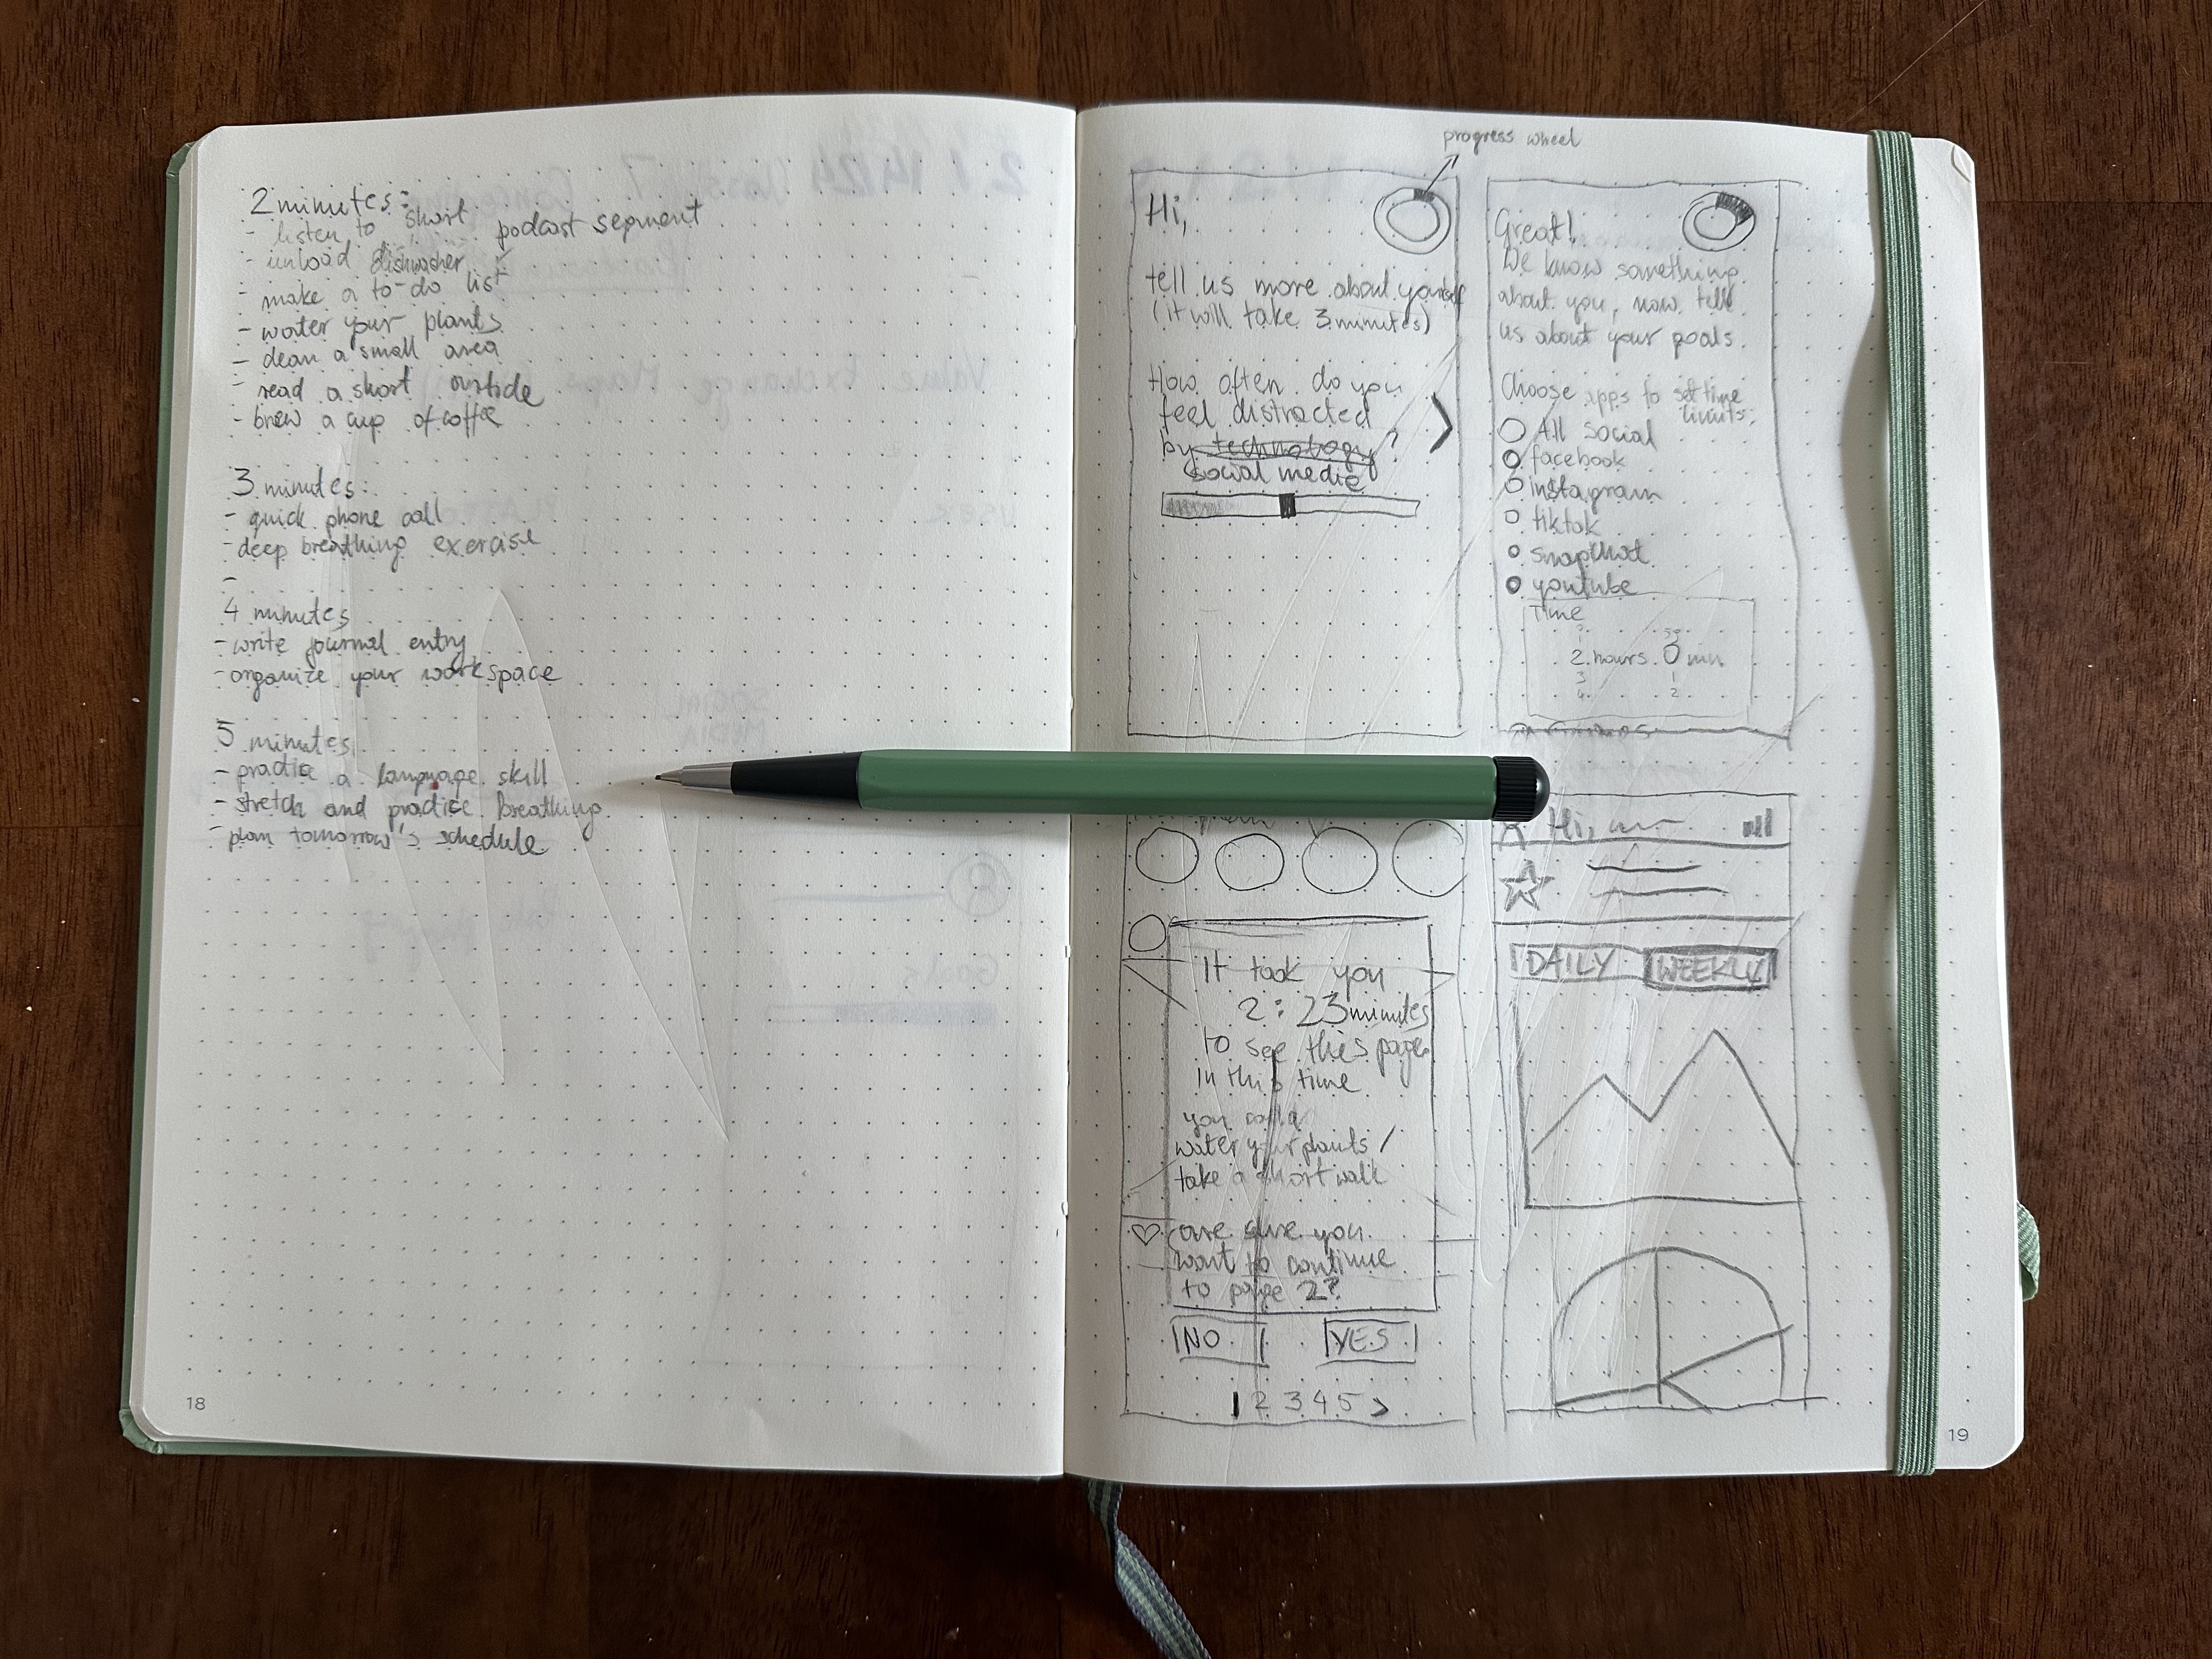 2 minutes:
- listen to short podcast segment
- unload dishwasher
- make a to-do list
- water your plants
- clean a small area
- read a short
- brew a cup of coffee
3 minutes:
- quick phone call
- deep breathing exercise
-
4 minutes
- write journal entry
- organize your workspace
5 minutes
- practice a language skill
- stretch and practice breathing
- plan tomorrow's schedule
18
progress wheel
Hi,
tell us more about yourself
(it will take 3 minutes)
How often do you
feel distracted
by technology?
social media
>
Great!
We know something
about you, now tell
us about your goals.
Choose apps to set time
limits:
All social
facebook
instagram
tiktok
snapchat
youtube
Time
1 59
2 hours 0 min
3 1
4 2
It took you
2:23 minutes
to see this page
in this time
you could
water your plants /
take a short walk
are sure you
want to continue
to page 2?
NO YES
1 2 3 4 5 >
Hi,
DAILY WEEKLY
19